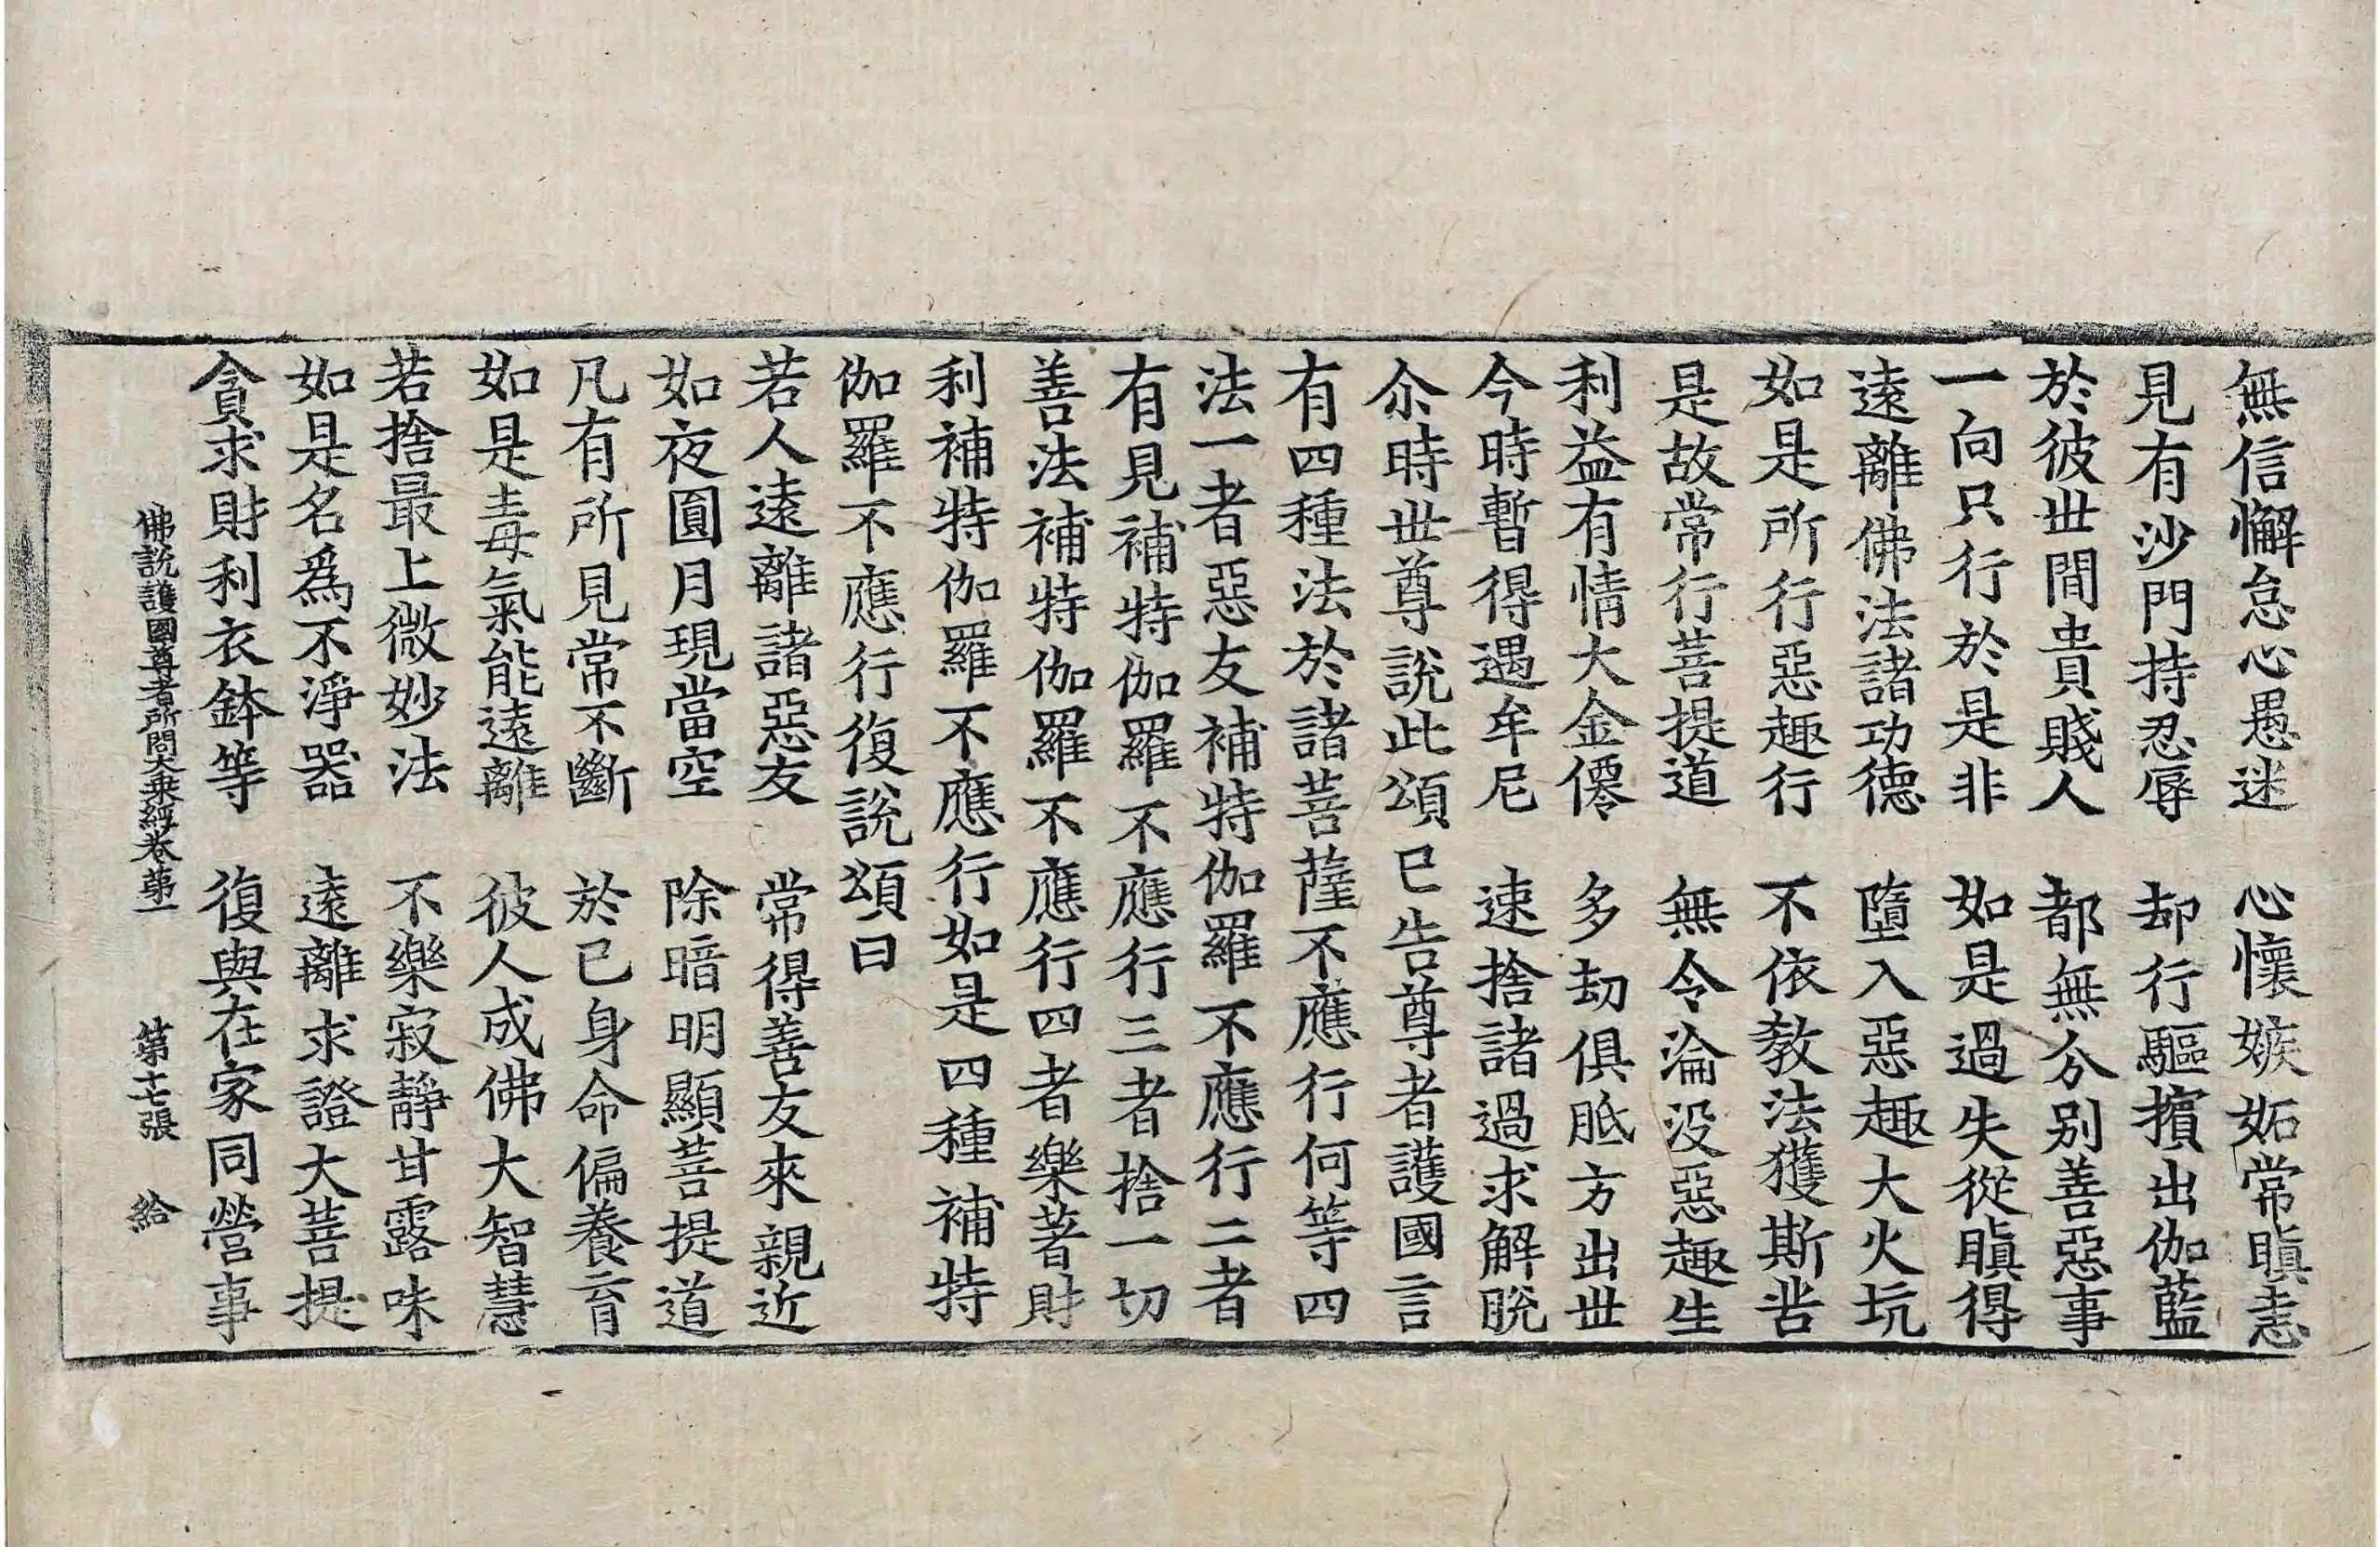 無信懈怠心愚迷　心懷嫉妬常瞋恚
見有沙門持忍辱　却行驅擯出伽藍
於彼世間貴賤人　都無分別善惡事
一向只行於是非　如是過失從瞋得
遠離佛法諸功德　墮入惡趣大火坑
如是所行惡趣行　不依教法獲斯苦
是故常行菩提道　無令淪没惡趣生
利益有情大金僊　多劫俱胝方出世
今時暫得遇牟尼　速捨諸過求解脫
尒時世尊說此頌已告尊者護國言
有四種法於諸菩薩不應行何等四
法一者惡友補特伽羅不應行二者
有見補特伽羅不應行三者捨一切
善法補特伽羅不應行四者樂著財
利補特伽羅不應行如是四種補特
伽羅不應行復說頌曰
若人遠離諸惡友　常得善友來親近
如夜圓月現當空　除暗明顯菩提道
凡有所見常不斷　於已身命偏養育
如是毒氣能遠離　彼人成佛大智慧
若捨最上微妙法　不樂寂靜甘露味
如是名爲不淨器　遠離求證大菩提
貪求財利衣鉢等　復與在家同營事
佛說護國尊者所問大乘經卷第一　第十七張　給